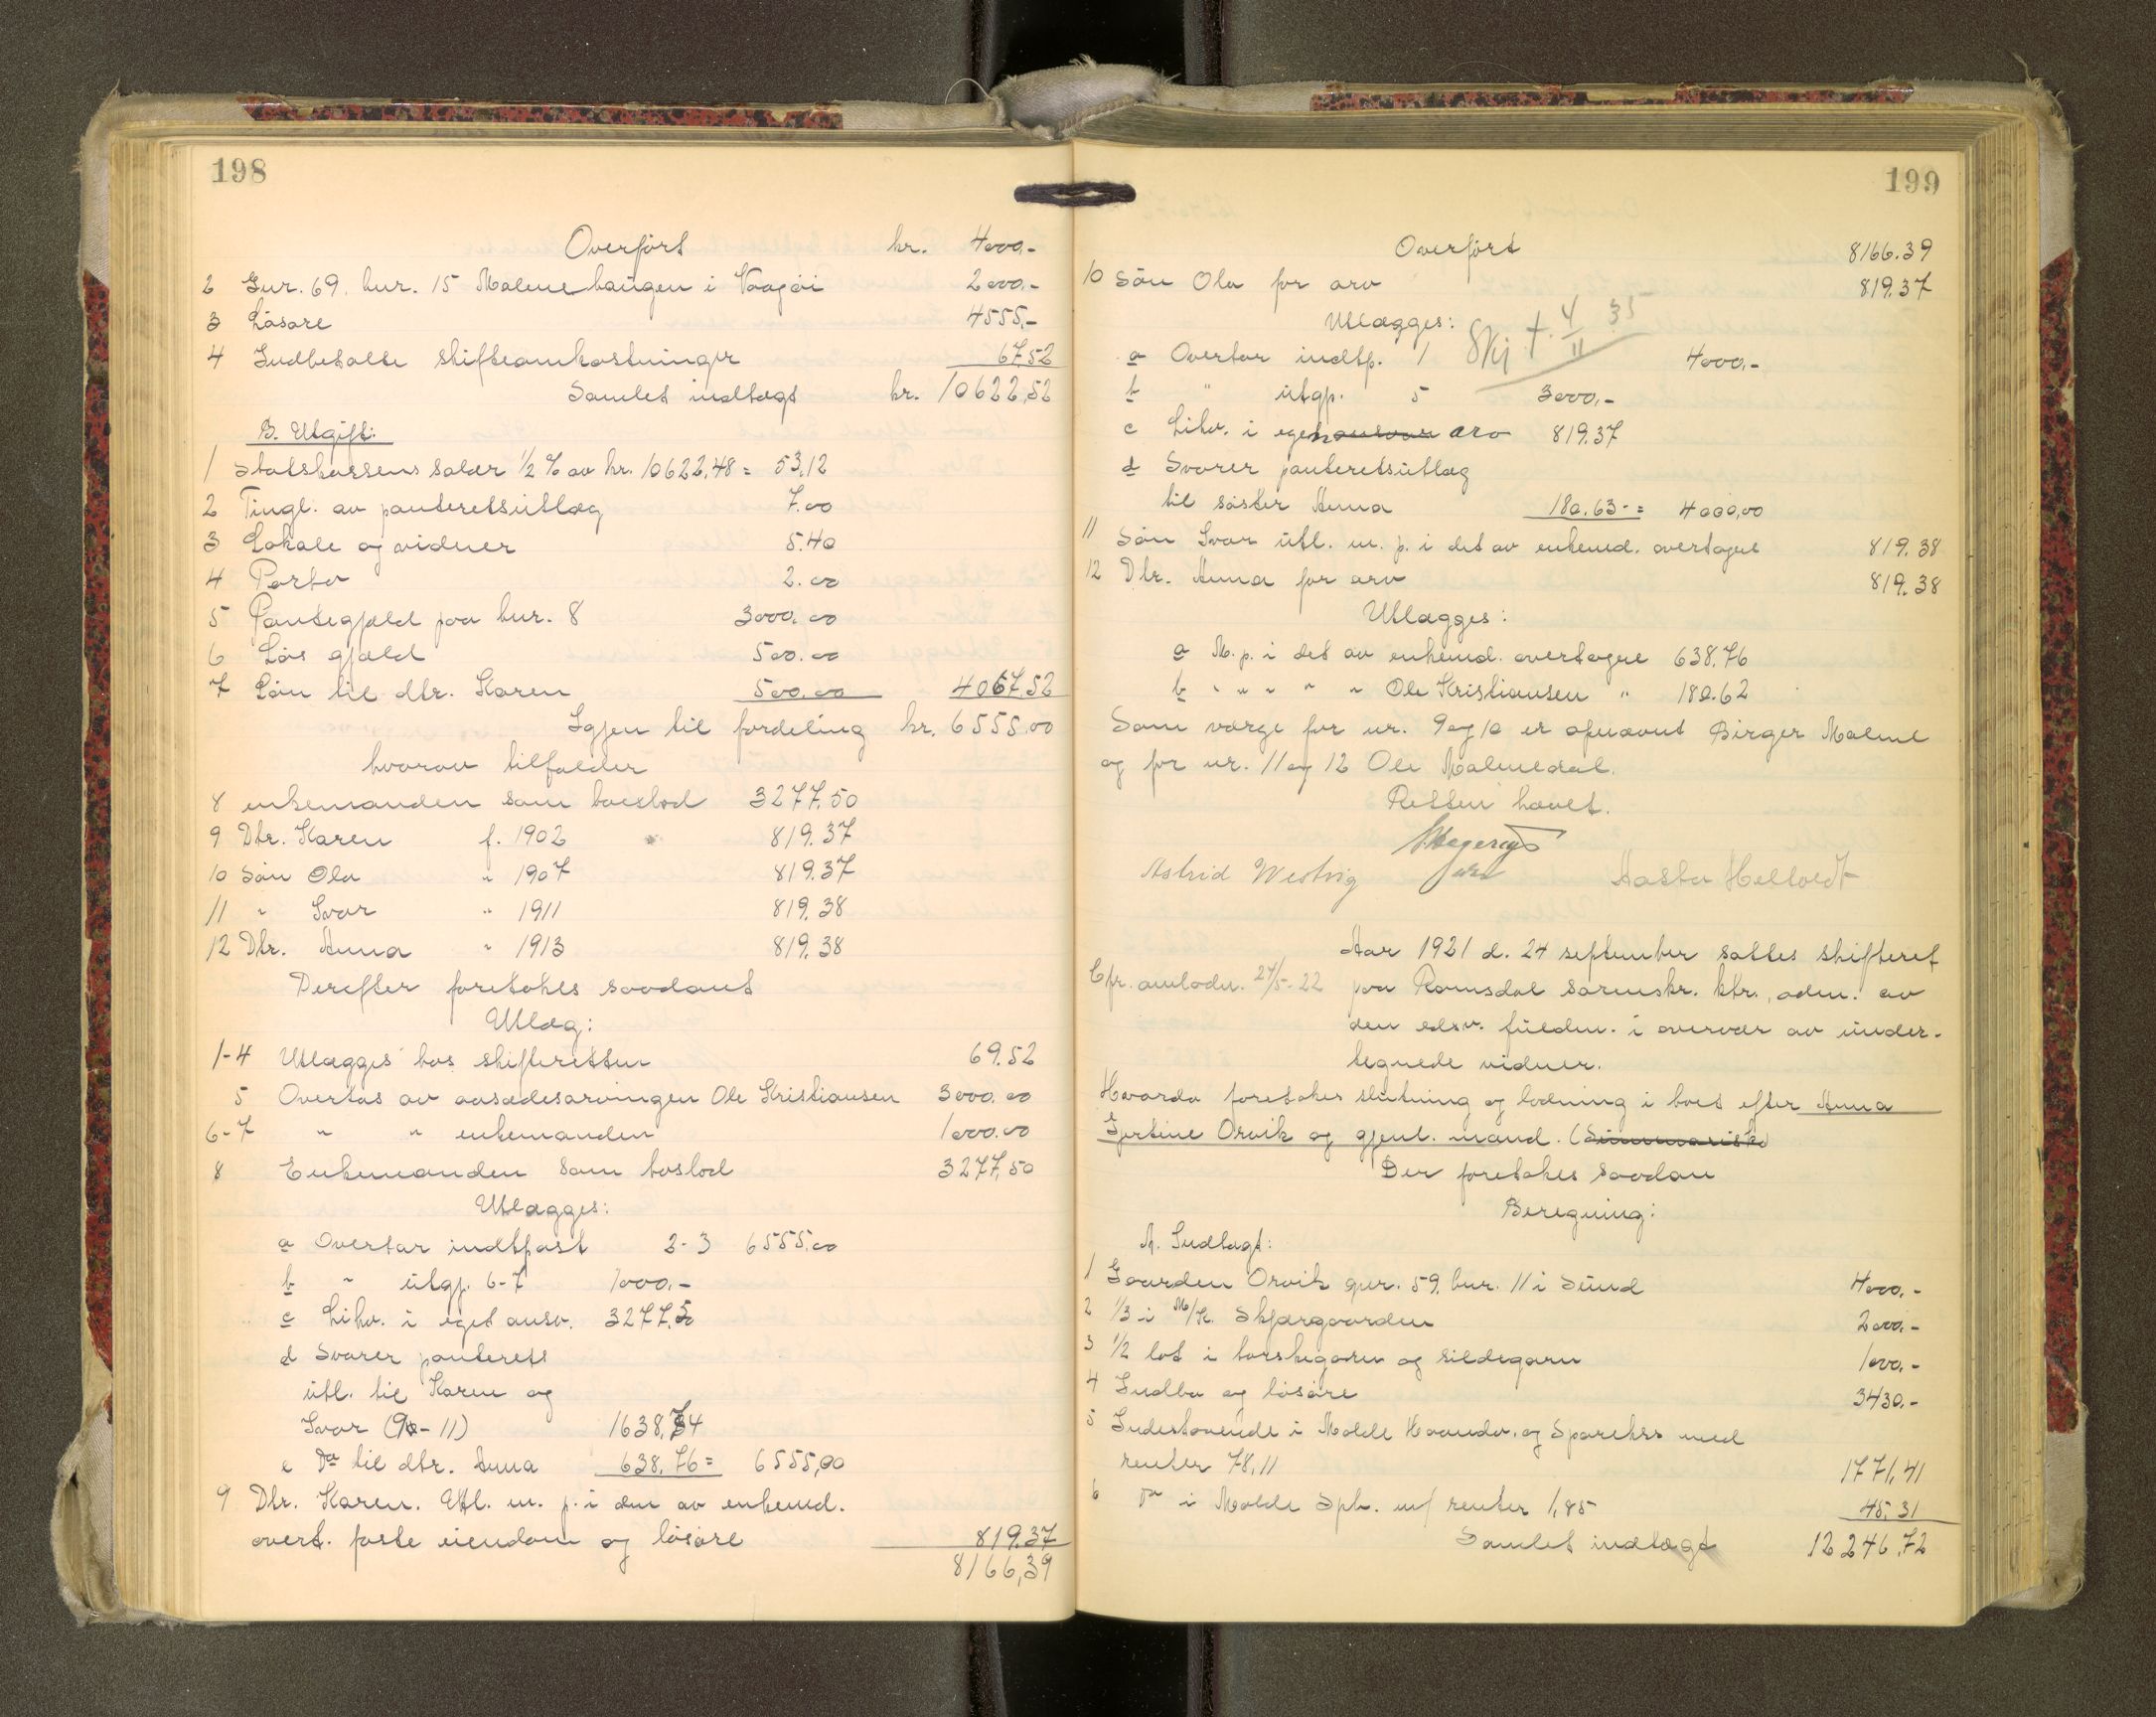 198
Overført kr. 4000.-
2 Gnr. 69. bnr. 15 Malmehaugen i Vaagøi 2000.-
3 Løsøre 4555.-
4 Indbetalte skifteomkostninger 67,52
Samlet indtægt kr. 10622,52
B. Utgift:
1 Statskassens salær ½ % av kr. 10622,48 = 53,12
2 Tingl. av panteretsutlæg 7.00
3 Lokale og vidner 5.40
4 Porto 2.00
5 Pantegjæld paa bnr. 8 3000.00
6 Løs gjæld 500.00
7 Løn til dtr. Karen 500.00 4067,52
Igjen til fordeling kr. 6555,00
hvorav tilfalder
8 enkemanden som boeslod 3277,50
9 Dtr. Karen f. 1902 819.37
10 Søn Ola " 1907 819.37
11 " Ivar " 1911 819.38
12 Dtr. Anna " 1913 819.38
Derefter foretokes saadant
Utlæg:
1-4 Utlægges hos skifteretten 69.52
5 Overtas av aasædesarvingen Ole Kristiansen 3000.00
6-7 " " enkemanden 1000.00
8 Enkemanden som boslod 3277,50
Utlægges:
a Overtar indtpost 2-3 6555.00
b " utgp. 6-7 1000.-
c Likv. i eget ansv. 3277.50
d Svarer panterets
utl. til Karen og
Ivar (9-11) 1638,74
e Do til dtr. Anna 638,76 = 6555,00
9 Dtr. Karen. Utl. m. p. i den av enkemd.
overt. faste eiendom og løsøre 819.37
8166,39
199
Overført 8166.39
10 Søn Ola for arv 819.37
Utlægges: Skj. t. 4/11 35
a Overtar indtp. 1 4000.-
b " utgp. 5 3000.-
c Likv. i egen ansvar arv 819.37
d Svarer panteretsutlæg
til søster Anna 180.63 = 4000,00
11 Søn Ivar utl. m. p. i det av enkemd. overtagne 819.38
12 Dtr. Anna for arv 819.38
Utlægges:
a M. p. i det av enkemd. overtagne 638,76
b " " " " " Ole Kristiansen " 180.62
Som værge for nr. 9 og 10 er opnævnt Birger Malme
og for nr. 11 og 12 Ole Malmedal.
Retten hævet.
Astrid Westvig
Aar 1921 d. 24 september sattes skifteret
Cfr. omloden. 24/5-22 paa Romsdal sorenskr. ktr., adm. av
den edsv. fuldm. i overvær av under-
tegnede vidner.
Hvorda foretokes slutning og lodning i boet efter Anna
Gjertine Orvik og gjenl. mand. (Summarisk)
Der foretokes saadan
Beregning:
A. Indtægt:
1 Gaarden Orvik gnr. 59. bnr. 11 i Sund 4000.-
2 1/3 i M/K. Skjærgaarden 2000.-
3 1/2 lot i torskegarn og sildegarn 1000.-
4 Indbo og løsøre 3430.-
5 Indestaaende i Molde Haandv. og Sparekss med
renter 78,11 1771,41
6 Do i Molde Spb. m/ renter 1,85 45.31
Samlet indtægt 12246,72